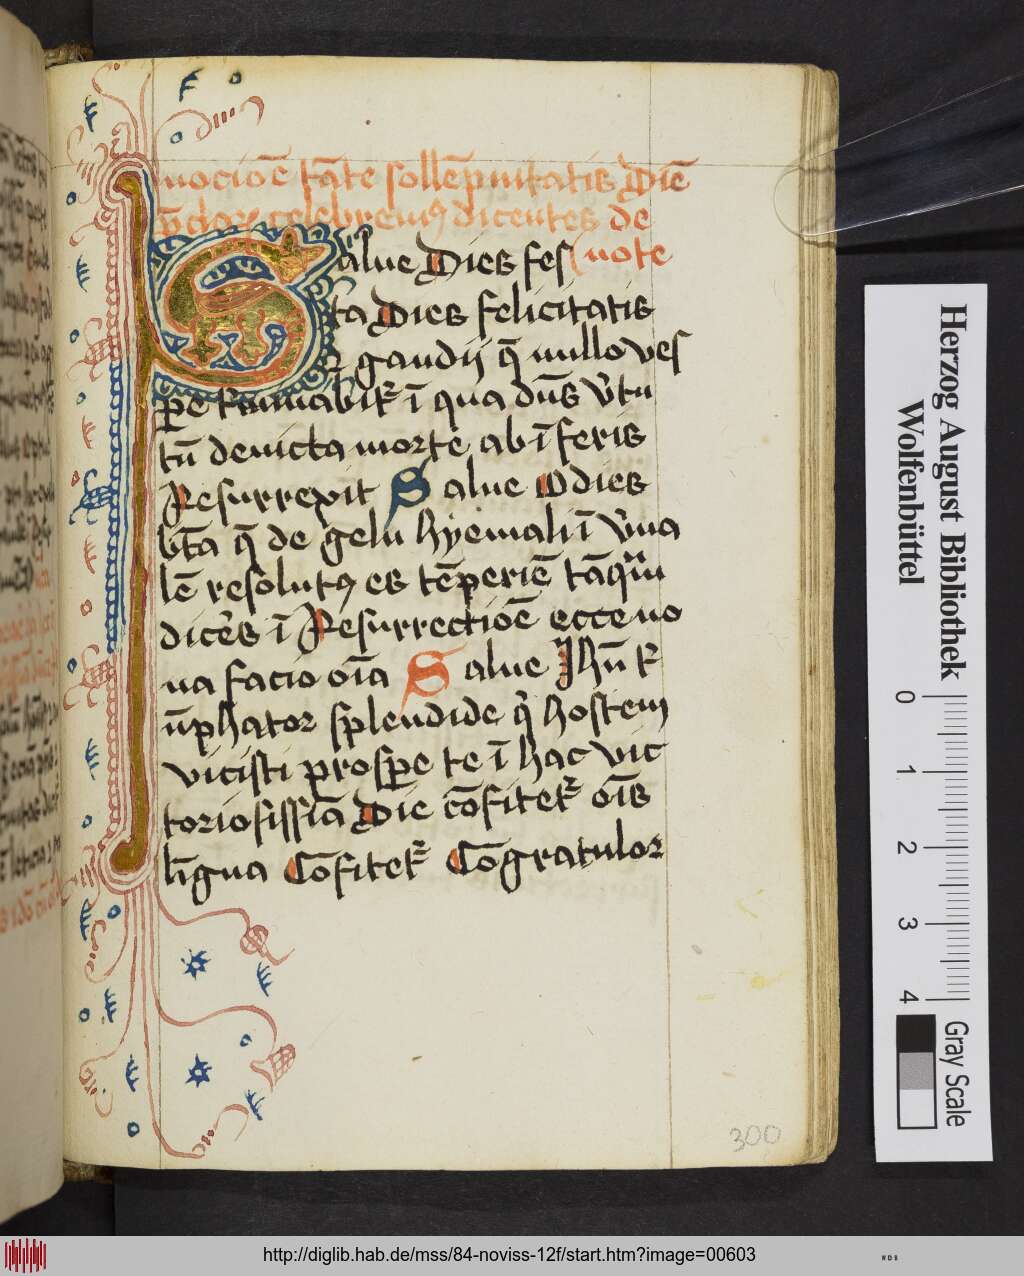 uocioē tāte sollēpnitatis Diē
p̄claꝝ celebremꝰ dicentes de
note
Salue Dies fes
ta Dies felicitatis
⁊ gaudij q̄ nullo ves
ꝑe t̄minabit᷑ ī qua dn̄s v̓tu
tū deuicta morte ab īferis
Resurrexit Salue O dies
bt̄a q̄ de gelu hyemali ī v̓na
lē resolutꝰ es tēperiē tāqͣm
dicēs ī Resurrectiōe ecce no
ua facio oīa Salue Jhū t͛
ūphator splendide q̓ hostem
vicisti prospe te ī hac vic
toriosissīa Die cōfitet᷑ oīs
līgua Cōfitet᷑ Cōgratulor
300
Herzog August Bibliothek
Wolfenbüttel
0 1 2 3 4
Gray Scale
http://diglib.hab.de/mss/84-noviss-12f/start.htm?image=00603